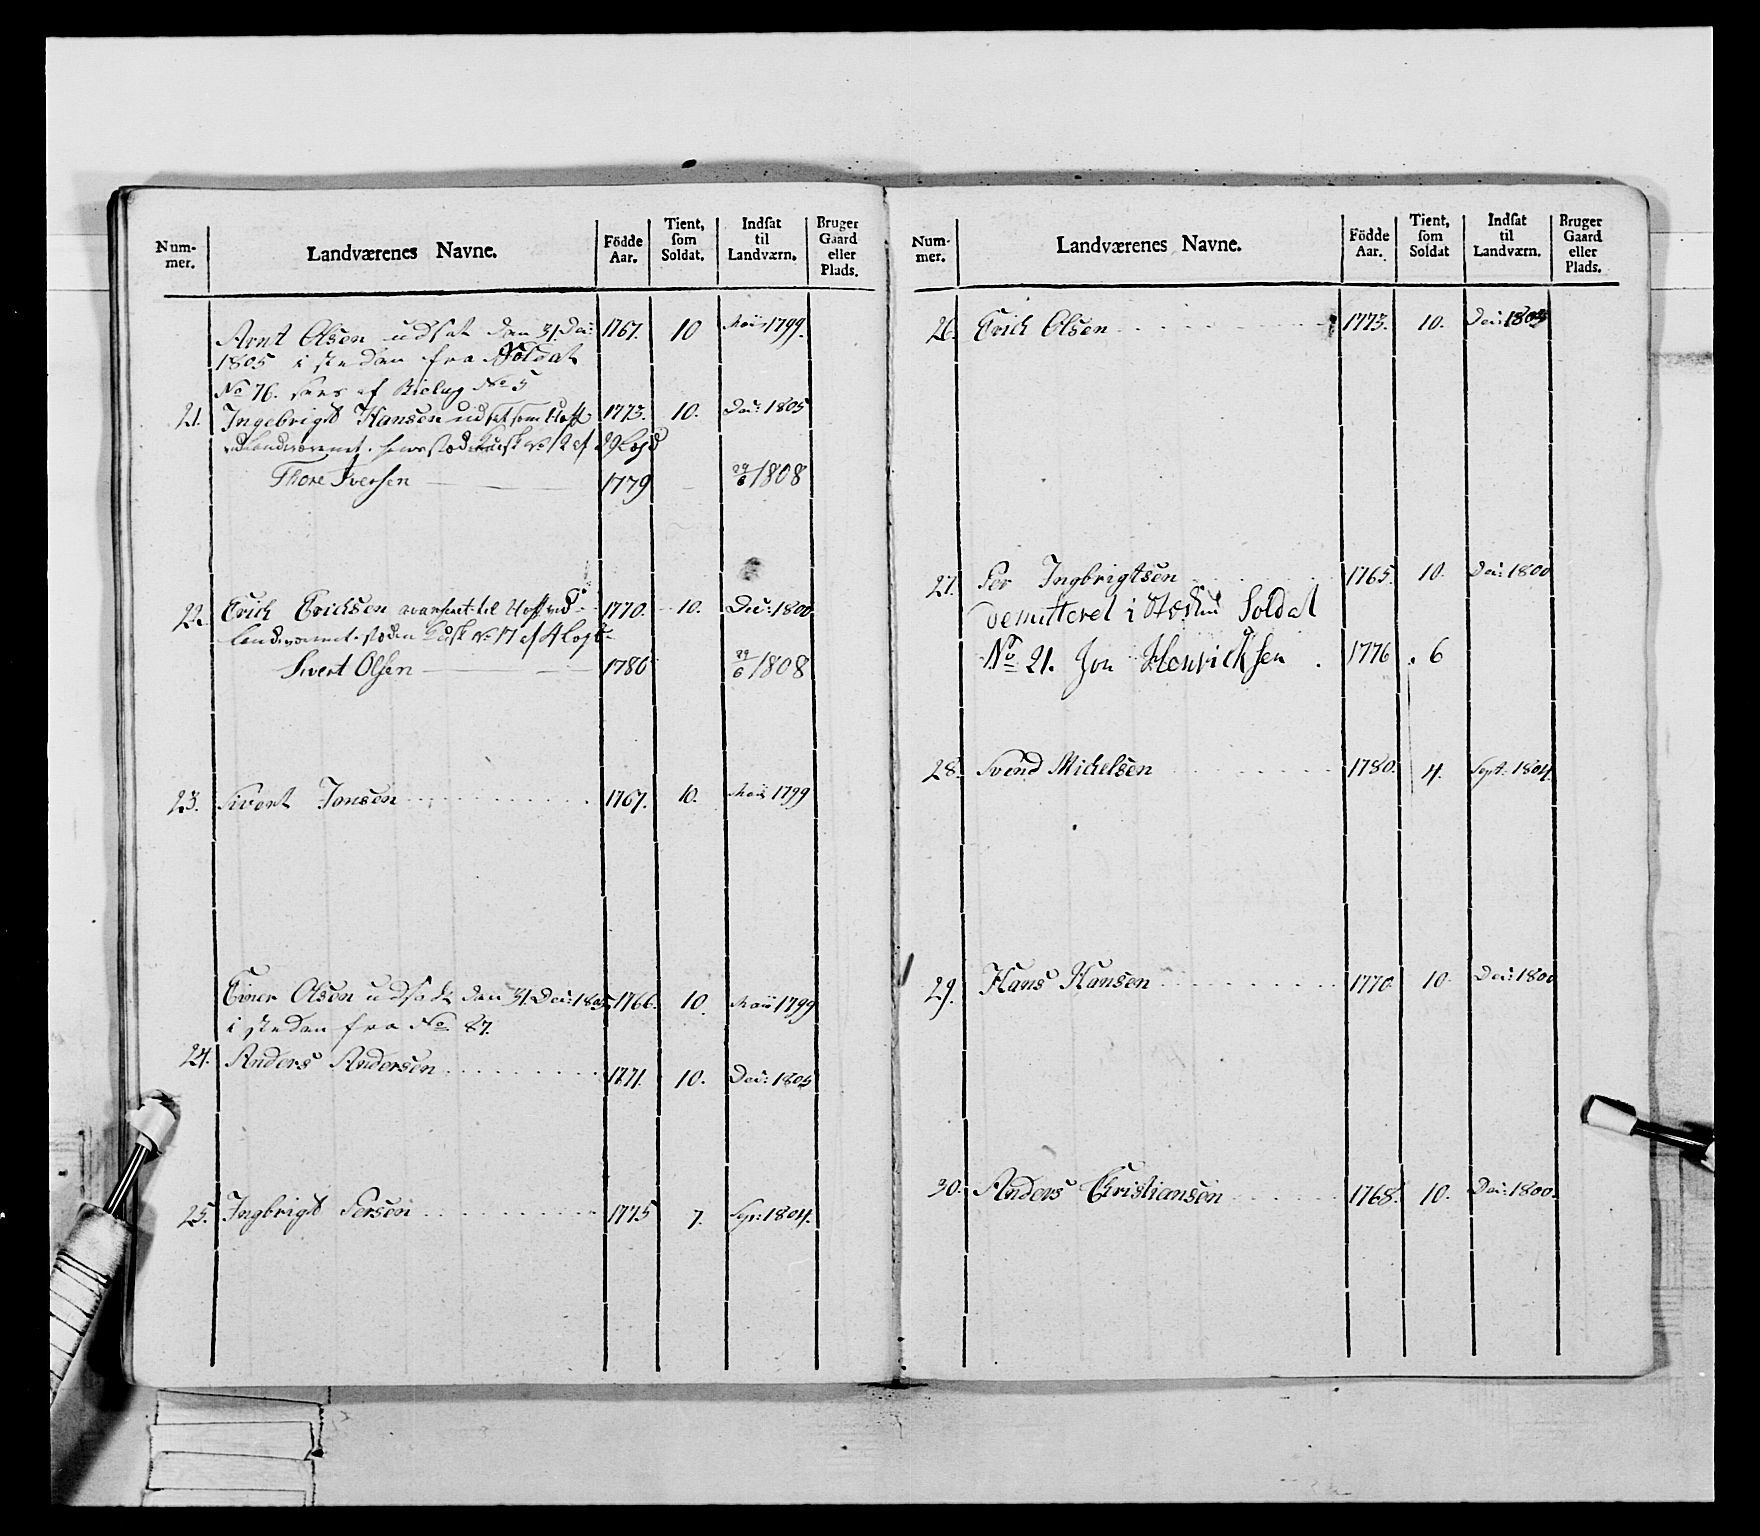 Num-
mer.
Landværenes Navne.
Födde
Aar.
Tient,
som
Soldat.
Indsat
til
Landværn.
Bruger
Gaard
eller
Plads.
Arnt Olsen udsat den 31. Dec: 1767. 10 Maii 1799.
1805 i steden fra Soldat
No 76. af No 5
21. Ingebrigt Hansen udset som 1773. 10. Dec: 1805
Landværnet. Kusk No 12 af
Thore Iversen 1779 29/6 1808
22. Erich Erichsen til 1770. 10. Dec: 1800
Landværnet Kusk No 17 af
Sivert Olsen 1780 29/6 1808
23. Sivert Jonsen 1767. 10. Maii 1799
Einer Olsen udsadt den 31. Dec: 1805 1766. 10. Maii 1799
i steden fra No 87.
24. Anders Andersen 1771. 10. Dec: 1805
25. Ingbrigt Persen 1775 7. Sept: 1804.
Num-
mer.
Landværenes Navne.
Födde
Aar.
Tient,
som
Soldat
Indsat
til
Landværn.
Bruger
Gaard
eller
Plads.
26. Erich Olsen 1773. 10. Dec: 1805
27. Per Ingbrigtsen 1765. 10. Dec: 1800
demitteret i Steden Soldat
No 21. Jon Henrichsen 1776 6
28. Svend Michelsen 1780. 4. Sept: 1804.
29. Hans Hansen 1770. 10. Dec: 1800
30. Anders Christiansen 1768. 10. Dec: 1800.